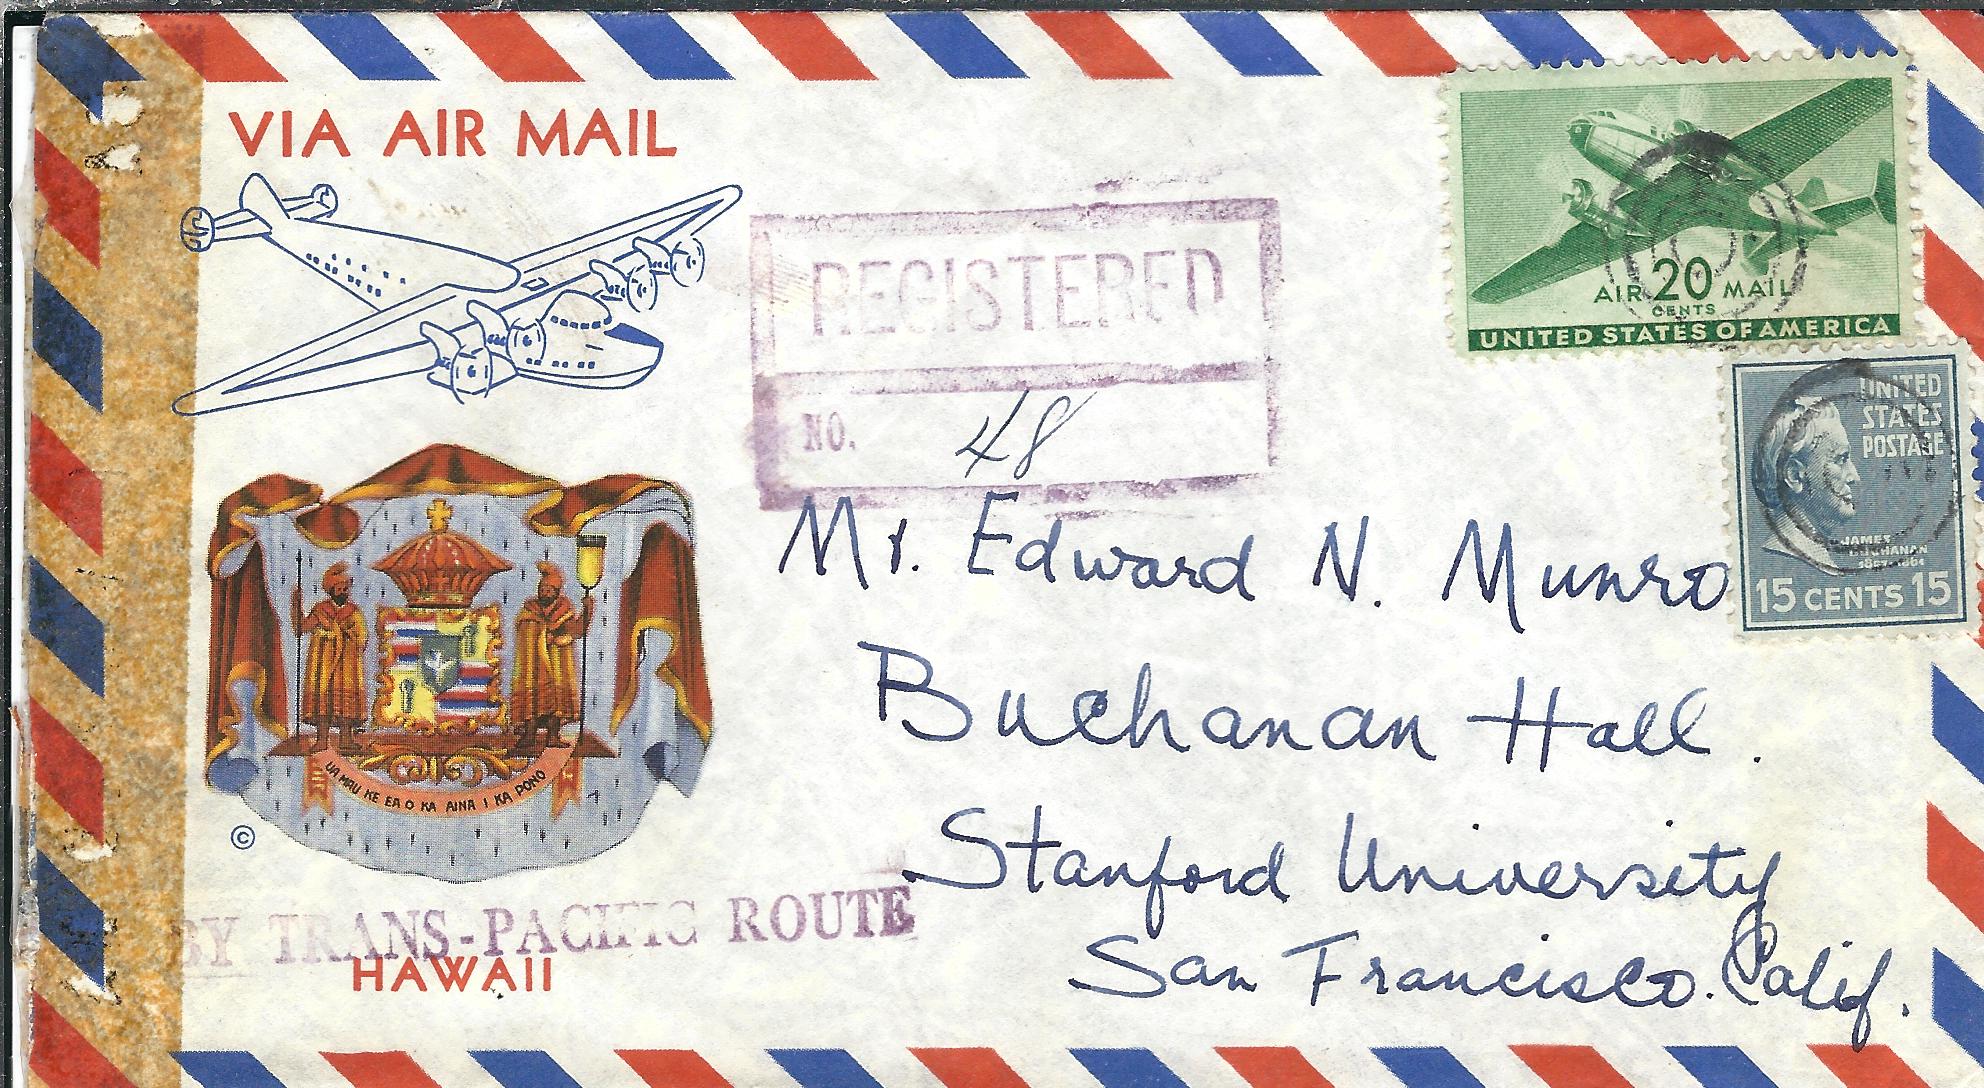 VIA AIR MAIL
REGISTERED
NO. 48
AIR 20 MAIL
CENTS
UNITED STATES OF AMERICA
UNITED
STATES
POSTAGE
JAMES
BUCHANAN
1857-1861
15 CENTS 15
Mr. Edward N. Munro
Buchanan Hall.
Stanford University
San Francisco. Calif.
UA MAU KE EA O KA AINA I KA PONO
©
BY TRANS-PACIFIC ROUTE
HAWAII